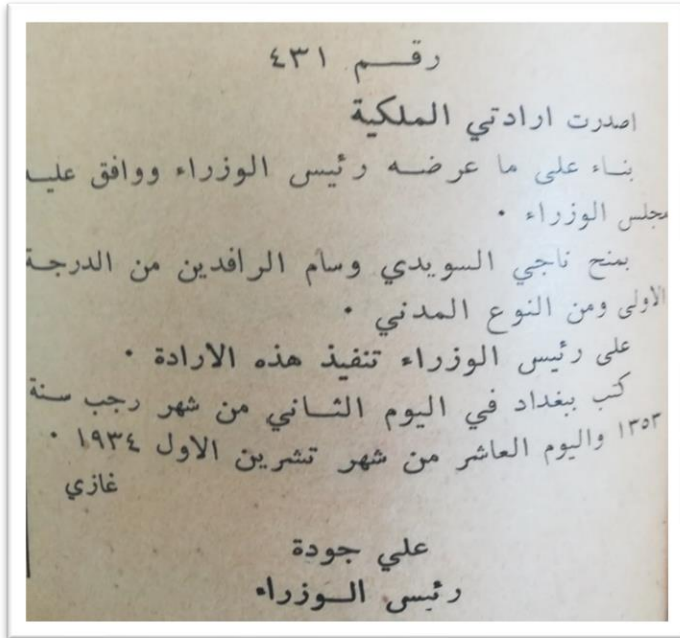 رقم ٤٣١
اصدرت ارادتي الملكية
بناء على ما عرضه رئيس الوزراء ووافق عليه
مجلس الوزراء .
بمنح ناجي السويدي وسام الرافدين من الدرجة
الاولى ومن النوع المدني .
على رئيس الوزراء تنفيذ هذه الارادة .
كتب ببغداد في اليوم الثاني من شهر رجب سنة
١٣٥٣ واليوم العاشر من شهر تشرين الاول ١٩٣٤ .
غازي
علي جودة
رئيس الوزراء